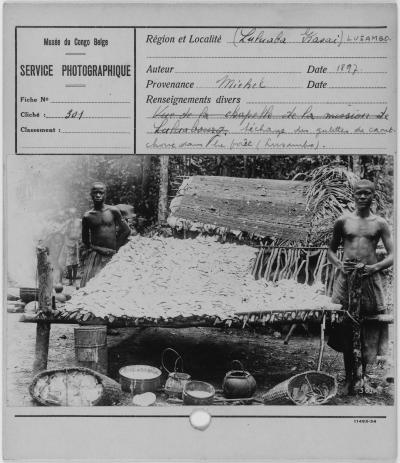 Musée du Congo Belge
SERVICE PHOTOGRAPHIQUE
Fiche No
Cliché : 301
Classement :
Région et Localité (Lulua Kasai) LUSAMBO.
Auteur Date 1897
Provenance Michel Date
Renseignements divers
Vue de la chapelle de la mission de
Luluabourg. Séchage des galettes de caout-
chouc dans la forêt (Lusambo).
301
11493-34